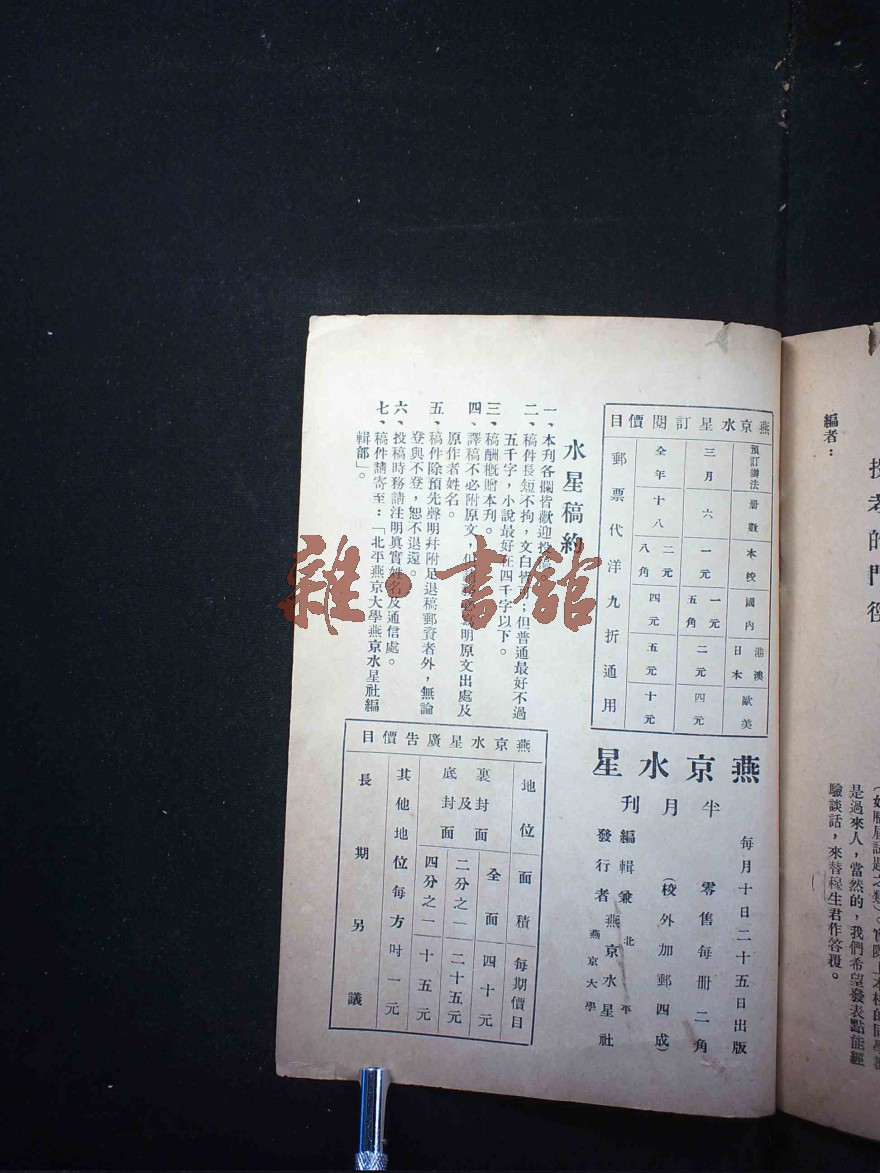 投考的門徑
編者：
是過來人，當然的，我們希望發表點能經
驗談話，來替程生君作答覆。
燕京水星訂閱價目
預訂辦法 册數 本校 國內 港澳日本 歐美
三月 六 一元 一元五角 二元 四元
全年 十八 二元八角 四元 五元 十元
郵票代洋九折通用
水星稿約
一、本刊各欄皆歡迎投
二、稿件長短不拘，文白皆；但普通最好不過
五千字，小說最好在四千字以下。
三、稿酬概贈本刊。
四、譯稿不必附原文，但明原文出處及
原作者姓名。
五、稿件除預先聲明幷附足退稿郵資者外，無論
登與不登，恕不退還。
六、投稿時務請注明眞實姓名及通信處。
七、稿件請寄至：「北平燕京大學燕京水星社編
輯部」。
燕京水星
半月刊
每月十日二十五日出版
零售每册二角
（校外加郵四成）
編輯兼發行者 燕京水星社
北平
燕京大學
燕京水星廣告價目
地位 面積 每期價目
裏封面及底封面 全面 四十元
二分之一 二十五元
四分之一 十五元
其他地位每方吋一元
長期另議
雜·書館